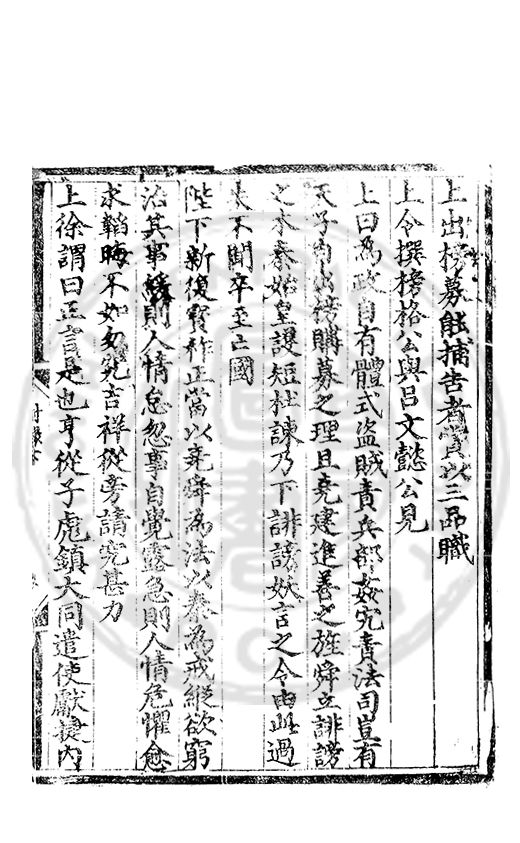 上出榜募能捕告者賞以三品職
上令撰榜格公與呂文懿公見
上曰爲政自有體式盜賊責兵部姦宄責法司豈有
天子自出榜購募之理且堯建進善之旌舜立誹謗
之木秦始皇護短杜諫乃下誹謗妖言之令由此過
失不聞卒至亡國
陛下新復寶祚正當以堯舜爲法以秦爲戒縱欲窮
治其事緩則人情怠忽事自覺露急則人情危懼愈
求韜晦不如勿究吉祥從旁請究甚力
上徐謂曰正言是也亨從子彪鎮大同遣使獻捷內
附錄